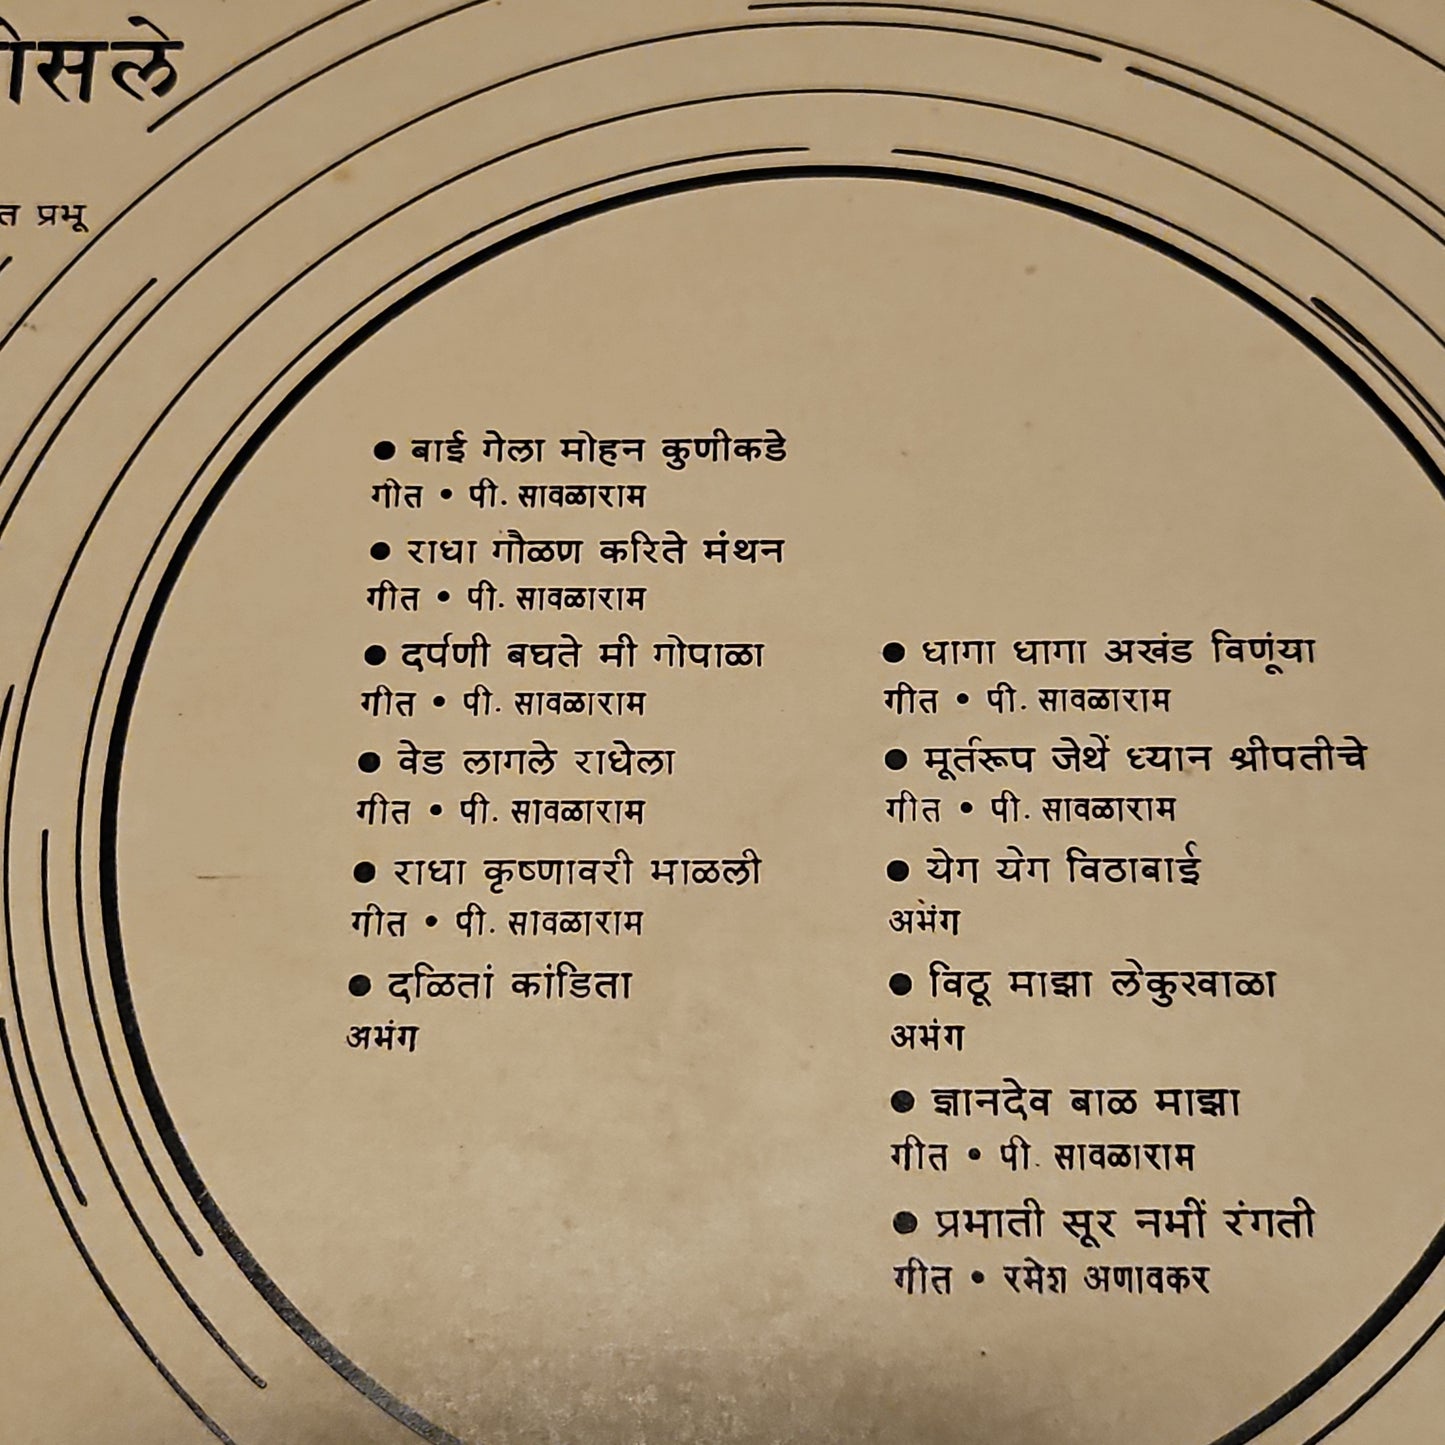 त प्रभू
● बाई गेला मोहन कुणीकडे
गीत • पी. सावळाराम
● राधा गौळण करिते मंथन
गीत • पी. सावळाराम
● दर्पणी बघते मी गोपाळा
गीत • पी. सावळाराम
● वेड लागले राधेला
गीत • पी. सावळाराम
● राधा कृष्णावरी भाळली
गीत • पी. सावळाराम
● दळितां कांडिता
अभंग
● धागा धागा अखंड विणूंया
गीत • पी. सावळाराम
● मूर्तरूप जेथें ध्यान श्रीपतीचे
गीत • पी. सावळाराम
● येग येग विठाबाई
अभंग
● विठू माझा लेकुरवाळा
अभंग
● ज्ञानदेव बाळ माझा
गीत • पी. सावळाराम
● प्रभाती सूर नभीं रंगती
गीत • रमेश अणावकर